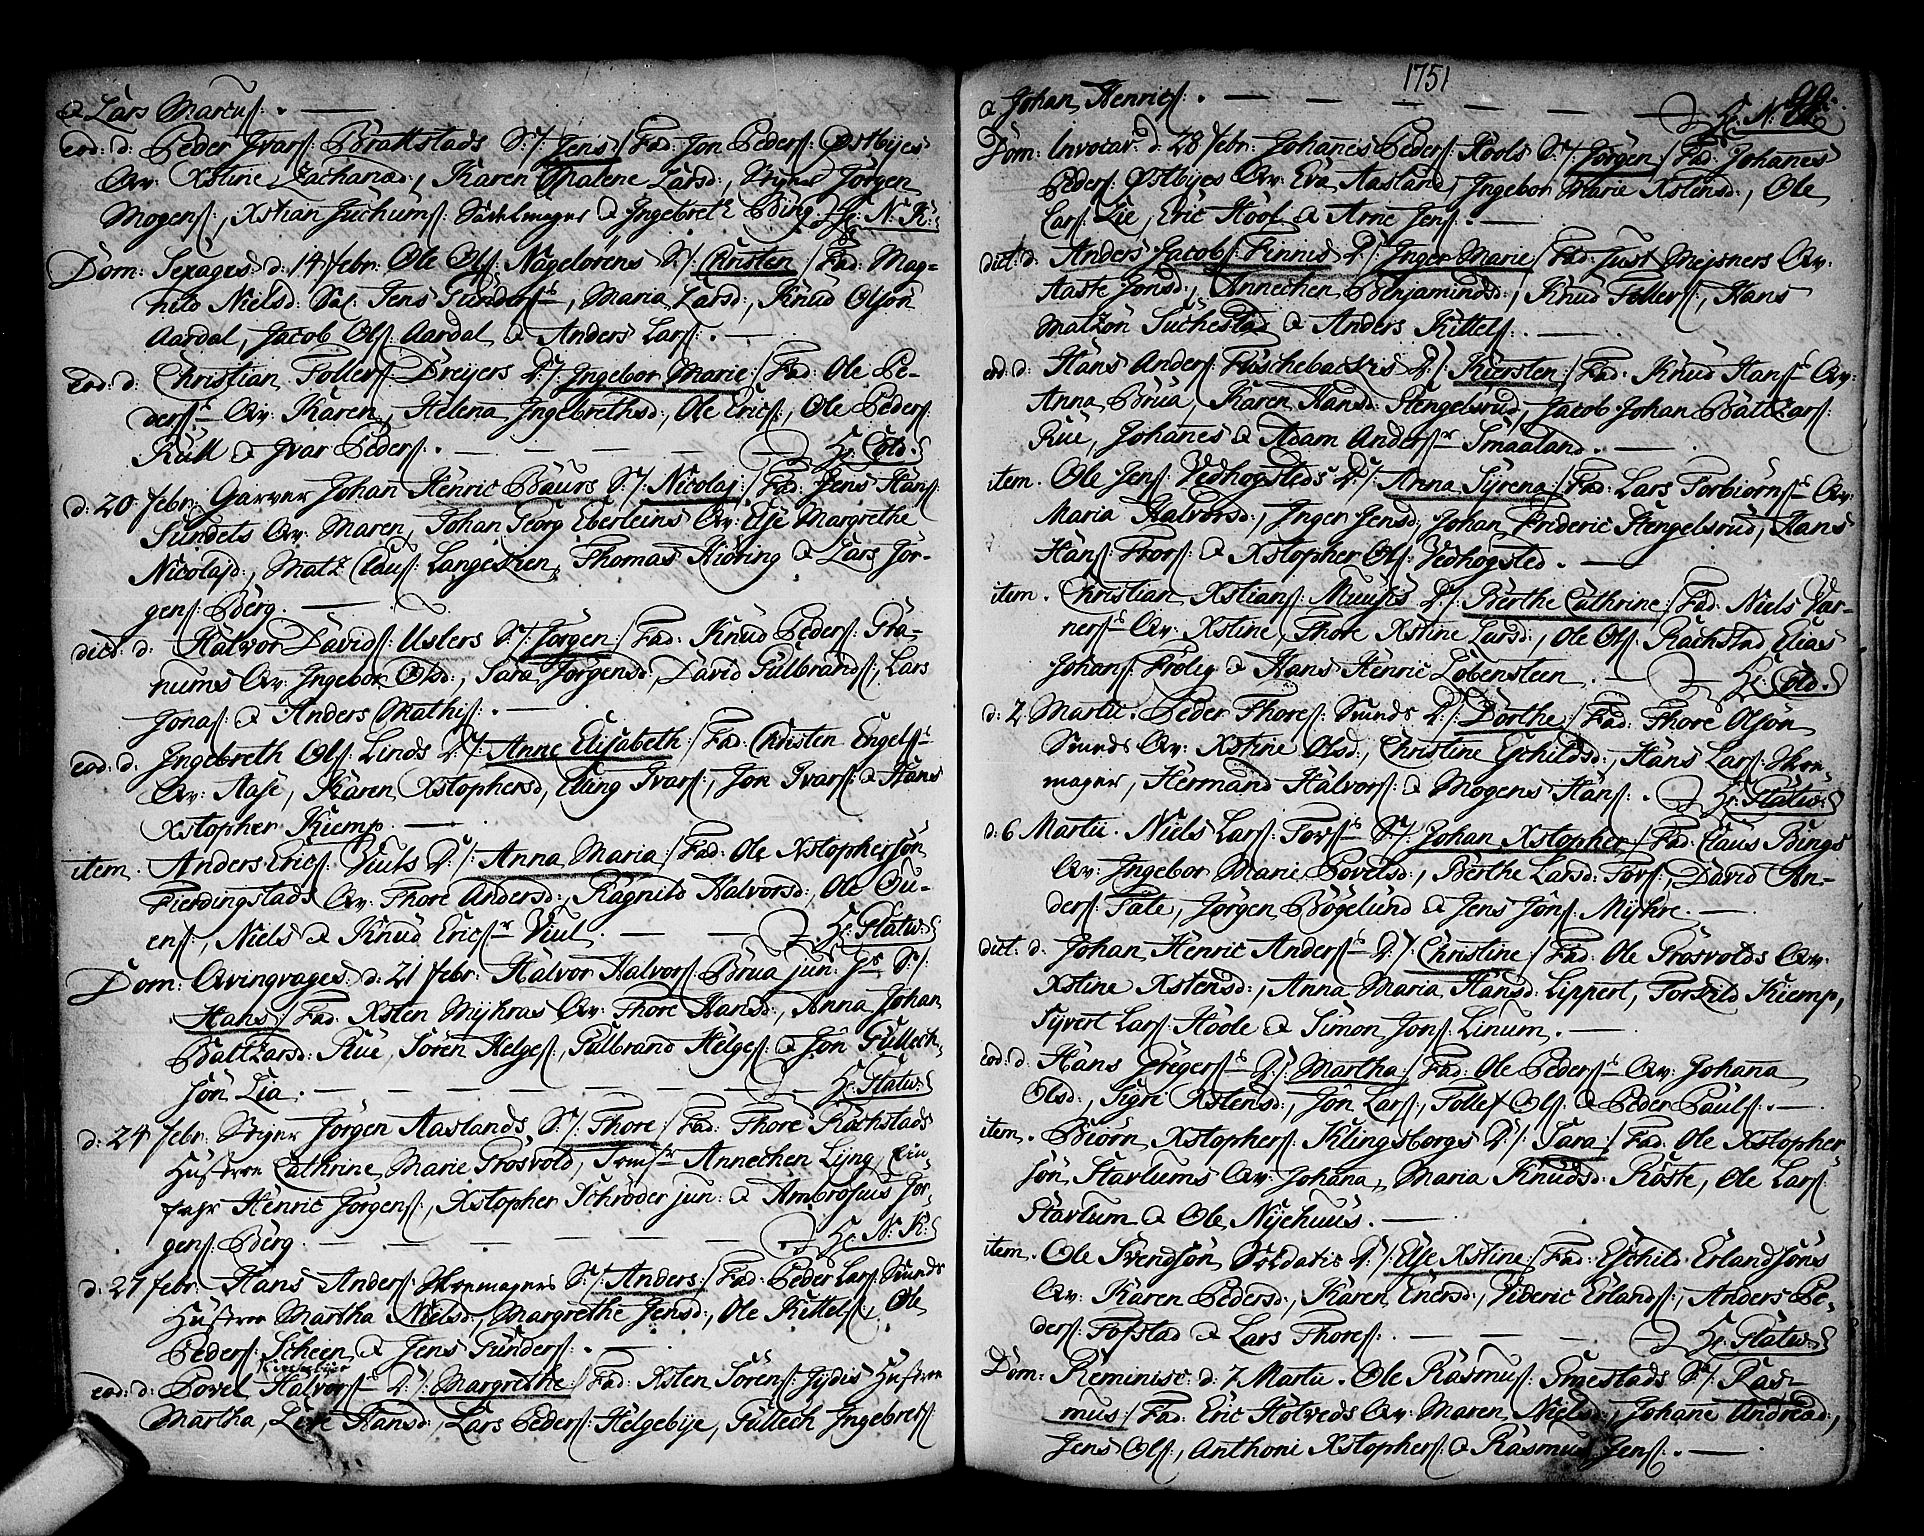 & Lars Marcus. —
eod: d: Peder Ivars: Brattstads S./: Jens /: Fad: Jon Peders: Østbijes
Qv: Xstine Zachariæd:, Karen Malene Larsd:, Jørgen
Mogens:, Xstian Juchums: Sadelmager & Ingebreth Bing. Hr: N: K:
Dom: Sexages: d: 14 febr: Ole Ols: Nagelørens S./: Christen /: Fad: Mag-
nild Nielsd: Sal: Jens Gunders:, Maria Larsd:, Knud Olsøn
Aardal, Jacob Ols: Aardal & Anders Lars:. —
Eod: d: Christian Tollers: Dreijers D./: Ingebor Marie: /: Fad: Ole Pe-
ders: Qv: Karen, Helena Ingebrethsd:, Ole Erics:, Ole Peders:
Kull & Ivar Peders:. — Hr: Cold:
d: 20 febr: Garver Johan Henric Baurs S./: Nicolaj: /: Fad: Jens Hans:
Sundets Qv: Maren, Johan Georg Eberleins Qv: Else Margrethe
Nicolajd:, Matz Claus: Langesteen, Thomas Kiøring & Lars Jør-
gens: Berg. —
dict: d: Halvor Davids: Uslers S./: Jørgen: /: Fad: Knud Peders: Gra-
nums Qv: Ingebor Olsd:, Sara Jørgensd:, David Gulbrands:, Lars
Jonas: & Anders Mathis:. —
eod: d: Ingebreth Ols: Linds D./: Anne Elisabeth: /: Fad: Christen Engels:
Qv: Aase, Karen Xstophersd:, Elling Ivars:, Jon Ivars: & Hans
Xstopher Kiemp. —
item. Anders Erics: Viuls D./: Anna Maria: /: Fad: Ole Xstophersøn
Fierdingstads Qv: Thore Andersd:, Ragnild Halvorsd:, Ole Gu-
ens:, Niels & Knud Erics: Viul. — Hr: Flatw:
Dom: Qvinqvages: d: 21 febr: Halvor Halvors: Brua jun: S./:
Hans /: Fad: Xsten Mijhras Qv: Thore Hansd:, Anna Johan
Baltzarsd: Rue, Søren Helges:, Gulbrand Helges: & Jon Gullich-
søn Lia. — Hr: Flatw:
d: 24 febr: Jørgen Aaslands S./: Thore: /: Fad: Thore Rachstads
Hustroe Cathrine Marie Grosvold, Annechen Lijng,
Henric Jørgens:, Xstopher Schrøder jun: & Ambrosius Jør-
gens: Berg. — Hr: N: K:
d: 27 febr: Hans Anders: Skoemagers S./: Anders: /: Fad: Peder Lars: Sunds
Hustroe Martha Nielsd:, Margrethe Jensd:, Ole Kittels:, Ole
Peders: Scheen & Jens Gunders:. —
eod: d: Povel Halvors: D./: Margrethe: /: Fad: Xsten Sørens: Hustroe
Martha, Live Hansd:, Lars Peders: Helgebije, Gullech Ingebrets:
1751
& Johan Henrics:. — Hr: N: K:
Dom: Invocav: d: 28 febr: Johanes Peders: Kools S./: Jørgen: /: Fad: Johanes
Peders: Østbijes Qv: Eva Aasland, Ingebor Marie Xstensd:, Ole
Lars: Lie, Eric Hool & Arne Jens:. —
dict: d: Anders Jacobs: Finnis D./: Inger Marie: /: Fad: Just Meisners Qv:
Aaste Jonsd:, Annechen Benjamindsd:, Knud Tollers:, Hans
Matzøn Suchestad & Anders Kittels:. —
eod: d: Hans Anders: Foschebachis D./: Kiersten: /: Fad: Knud Hans: Qv:
Anna Brua, Karen Hansd: Stengelsrud, Jacob Johan Baltzars:
Rue, Johanes & Adam Anders: Smaaland. —
item. Ole Jens: Vedhogsteds D./: Anna Syrena: /: Fad: Lars Torbiørns: Qv:
Maria Halvorsd:, Inger Jensd:, Johan Frideric Stengelsrud, Hans
Hans: Thors: & Xstopher Ols: Vedhogsted. —
item. Christian Xstians: Muusis D./: Berthe Cathrine: /: Fad: Niels Var-
ners: Qv: Xstine, Thore Xstine Larsd:, Ole Ols: Rachstad, Elias
Johans: Frølig & Hans Henric Løbensteen. — Hr: Cold:
d: 2 Martii. Peder Thores: Sunds D./: Dorthe: /: Fad: Thore Olsøn
Sunds Qv: Xstine Olsd:, Christine Eschildsd:, Hans Lars: Skoe-
mager, Hermand Halvors: & Mogens Hans:. Hr: Flatw:
d: 6 Martii. Niels Lars: Fors: S./: Johan Xstopher: /: Fad: Claus Bings
Qv: Ingebor Marie Povelsd:, Berthe Larsd: Fors:, David An-
ders: Tate, Jørgen Bøgelund & Jens Jons: Mijhre. —
dict: d: Johan Henric Anders: D./: Christine: /: Fad: Ole Grosvolds Qv:
Xstine Xstensd:, Anna Maria Hansd: Lippert, Torkild Kiemp,
Syvert Lars: Hoole & Simon Jons: Linum. —
eod: d: Hans Gregers: D./: Martha: /: Fad: Ole Peders: Qv: Johana
Olsd:, Sigri Xstensd:, Jon Lars:, Tollef Ols: & Peder Pauls:. —
item. Biørn Xstophers: Klingsborgs D./: Sara: /: Fad: Ole Xstopher-
søn Stavlums Qv: Johana, Maria Knudsd: Røste, Ole Lars:
Stavlum & Ole Nijehuus. —
item. Ole Svendsøn Soldatis D./: Else Xstine: /: Fad: Eschild Erlandsøns
Qv: Karen Pedersd:, Karen Enersd:, Videric Erlands:, Anders Pe-
ders: Fofstad & Lars Thores:. — Hr: Flatw:
Dom: Reminisc: d: 7 Martii. Ole Rasmus: Smestads S./: Ras-
mus: /: Fad: Eric Holveds Qv: Maren Nielsd:, Johane Andread:,
Jens Ols:, Anthoni Xstophers: & Rasmus Jens:. —